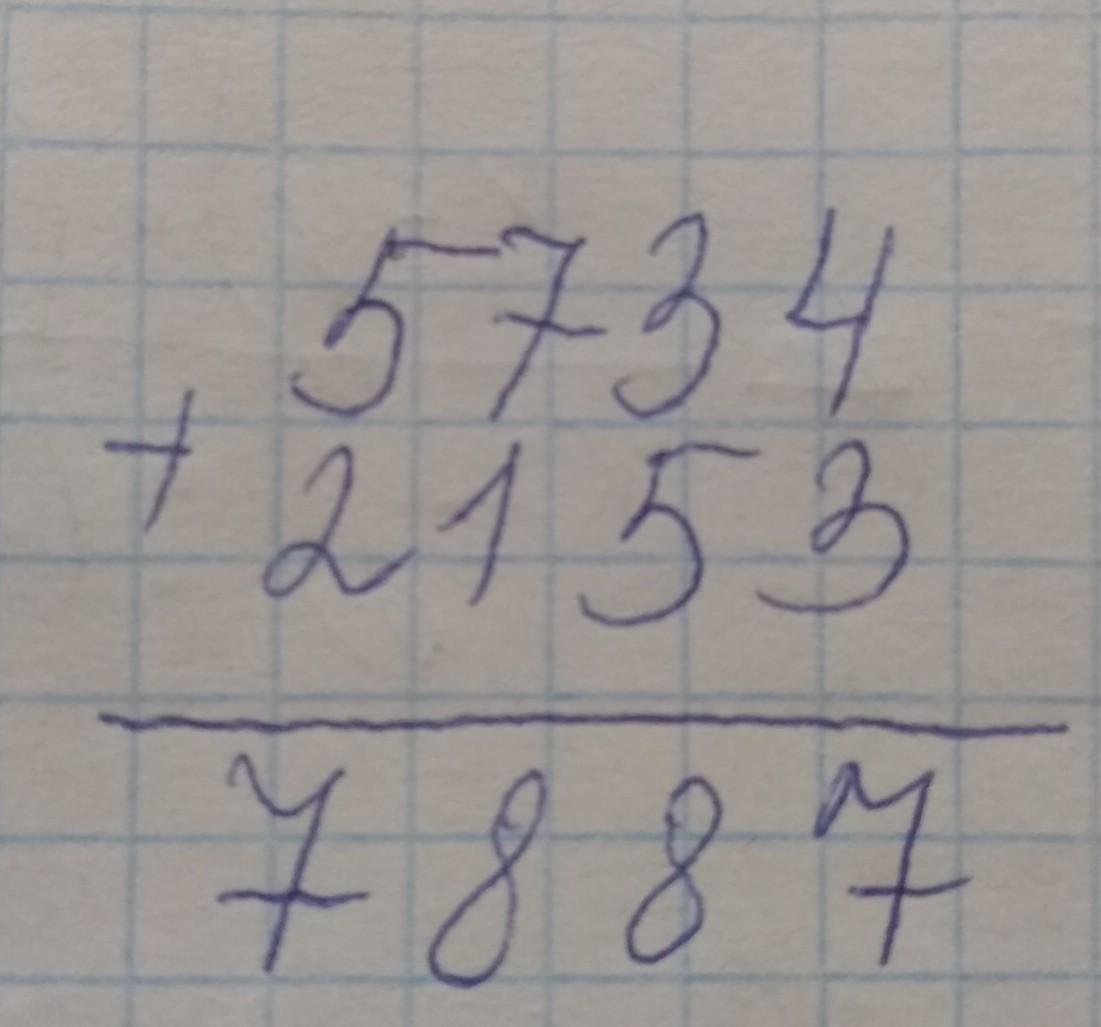 5734
+ 2153
7887